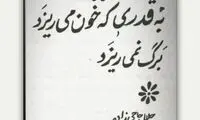 به قدری که خون می ریزد
برگ نمی ریزد
جلیل حاجی زاده